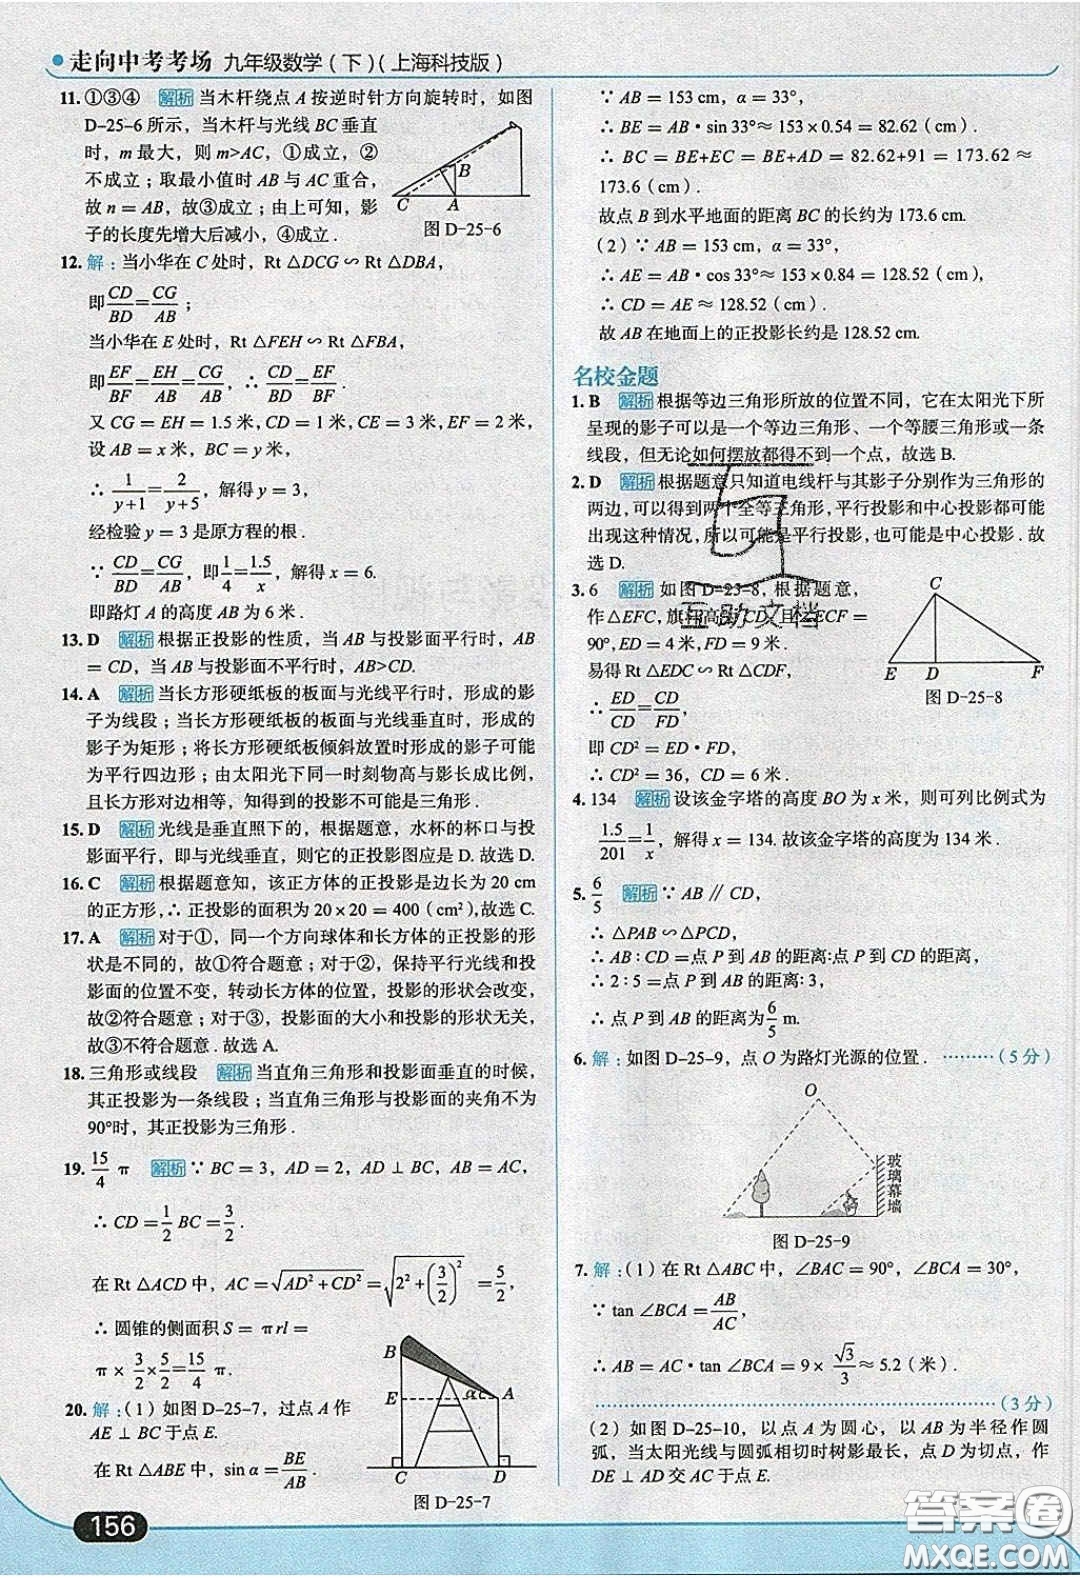 走向中考考场 九年级数学(下)(上海科技版)
11.①③④ 解析 当木杆绕点A按逆时针方向旋转时,如图
D-25-6所示,当木杆与光线BC垂直
时,m最大,则m>AC,①成立,②
不成立;取最小值时AB与AC重合,
故n=AB,故③成立;由上可知,影
子的长度先增大后减小,④成立.
B
C A
图D-25-6
12.解:当小华在C处时,Rt△DCG∽Rt△DBA,
即CD/BD=CG/AB;
当小华在E处时,Rt△FEH∽Rt△FBA,
即EF/BF=EH/AB=CG/AB,∴CD/BD=EF/BF.
又CG=EH=1.5米,CD=1米,CE=3米,EF=2米,
设AB=x米,BC=y米,
∴1/(y+1)=2/(y+5),解得y=3,
经检验y=3是原方程的根.
∵CD/BD=CG/AB,即1/4=1.5/x,解得x=6.
即路灯A的高度AB为6米.
13.D 解析 根据正投影的性质,当AB与投影面平行时,AB
=CD,当AB与投影面不平行时,AB>CD.
14.A 解析 当长方形硬纸板的板面与光线平行时,形成的影
子为线段;当长方形硬纸板的板面与光线垂直时,形成的
影子为矩形;将长方形硬纸板倾斜放置时形成的影子可能
为平行四边形;由太阳光下同一时刻物高与影长成比例,
且长方形对边相等,知得到的投影不可能是三角形.
15.D 解析 光线是垂直照下的,根据题意,水杯的杯口与投
影面平行,即与光线垂直,则它的正投影图应是D.故选D.
16.C 解析 根据题意知,该正方体的正投影是边长为20 cm
的正方形,∴正投影的面积为20×20=400(cm²),故选C.
17.A 解析 对于①,同一个方向球体和长方体的正投影的形
状是不同的,故①符合题意;对于②,保持平行光线和投
影面的位置不变,转动长方体的位置,投影的形状会改变,
故②符合题意;对于③,投影面的大小和投影的形状无关,
故③不符合题意.故选A.
18.三角形或线段 解析 当直角三角形和投影面垂直的时候,
其正投影为一条线段;当直角三角形与投影面的夹角不为
90°时,其正投影为三角形.
19.15/4 π 解析 ∵BC=3,AD=2,AD⊥BC,AB=AC,
∴CD=1/2 BC=3/2.
在Rt△ACD中,AC=√(AD²+CD²)=√(2²+(3/2)²)=5/2,
∴圆锥的侧面积S=πrl=
π×3/2×5/2=15/4 π.
20.解:(1)如图D-25-7,过点A作
AE⊥BC于点E.
在Rt△ABE中,sinα=BE/AB.
B
E α A
C D
图D-25-7
156
∵AB=153 cm,α=33°,
∴BE=AB·sin 33°≈153×0.54=82.62(cm).
∴BC=BE+EC=BE+AD=82.62+91=173.62≈
173.6(cm).
故点B到水平地面的距离BC的长约为173.6 cm.
(2)∵AB=153 cm,α=33°,
∴AE=AB·cos 33°≈153×0.84=128.52(cm),
∴CD=AE≈128.52(cm).
故AB在地面上的正投影长约是128.52 cm.
名校金题
1.B 解析 根据等边三角形所放的位置不同,它在太阳光下所
呈现的影子可以是一个等边三角形、一个等腰三角形或一条
线段,但无论如何摆放都得不到一个点,故选B.
2.D 解析 根据题意只知道电线杆与其影子分别作为三角形的
两边,可以得到两个全等三角形,平行投影和中心投影都可能
出现这种情况,所以可能是平行投影,也可能是中心投影.故
选D.
3.6 解析 如图D-25-8,根据题意,
作△EFC,旗杆高度CD,且∠ECF=
90°,ED=4米,FD=9米.
易得Rt△EDC∽Rt△CDF,
∴ED/CD=CD/FD,
即CD²=ED·FD,
∴CD²=36,CD=6米.
C
E D F
图D-25-8
互助文档
4.134 解析 设该金字塔的高度BO为x米,则可列比例式为
1.5/201=1/x,解得x=134.故该金字塔的高度为134米.
5.6/5 解析 ∵AB∥CD,
∴△PAB∽△PCD,
∴AB∶CD=点P到AB的距离∶点P到CD的距离,
∴2∶5=点P到AB的距离∶3,
∴点P到AB的距离为6/5 m.
6.解:如图D-25-9,点O为路灯光源的位置. ………(5分)
O
玻璃幕墙
图D-25-9
7.解:(1)在Rt△ABC中,∠BAC=90°,∠BCA=30°,
∵tan∠BCA=AB/AC,
∴AB=AC·tan∠BCA=9×√3/3≈5.2(米).
………(3分)
(2)如图D-25-10,以点A为圆心,以AB为半径作圆
弧,当太阳光线与圆弧相切时树影最长,点D为切点,作
DE⊥AD交AC于点E.
答案圈
MXQE.COM